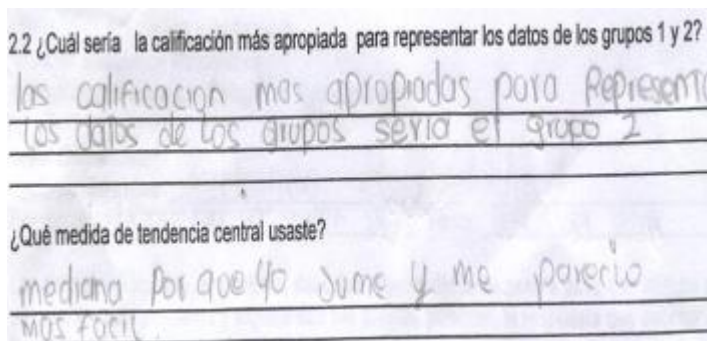 2.2 ¿Cuál sería la calificación más apropiada para representar los datos de los grupos 1 y 2?
las calificacion mas apropiadas para Representa
los datos de los grupos seria el grupo 2
¿Qué medida de tendencia central usaste?
mediana por que yo sume y me parecio
mas facil.